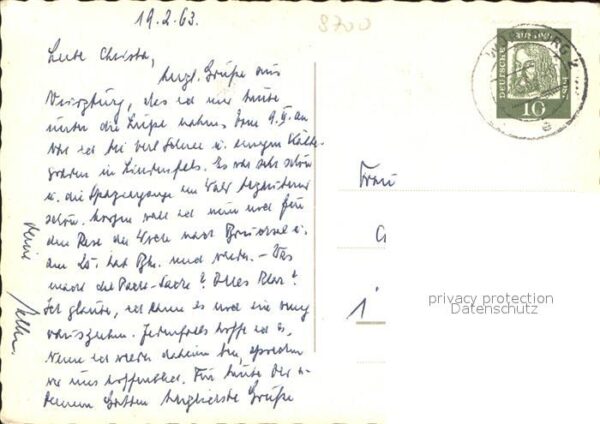 19.2.63.
8700
Liebe Christa,
herzl. Grüße aus
Würzburg, das ich mir heute
unter die Lupe nahm. Vom 9.II. an
war ich bei viel Schnee u. einigen Kälte-
graden in Lindenfels. Es war sehr schön
u. die Spaziergänge im Wald
schön. Morgen will ich nun noch für
den Rest der Woche nach u.
am 25. hat mich wieder. – Was
macht die Sache? Alles klar?
Ich glaube, ich kann es noch ein
. Jedenfalls hoffe ich es.
Wenn ich wieder daheim bin, sprechen
wir uns hoffentlich. Für heute Dir u.
Deinem Gatten herzlichste Grüße
Deine
Frau
G
1
DEUTSCHE BUNDESPOST
10
WÜRZBURG 2
privacy protection
Datenschutz